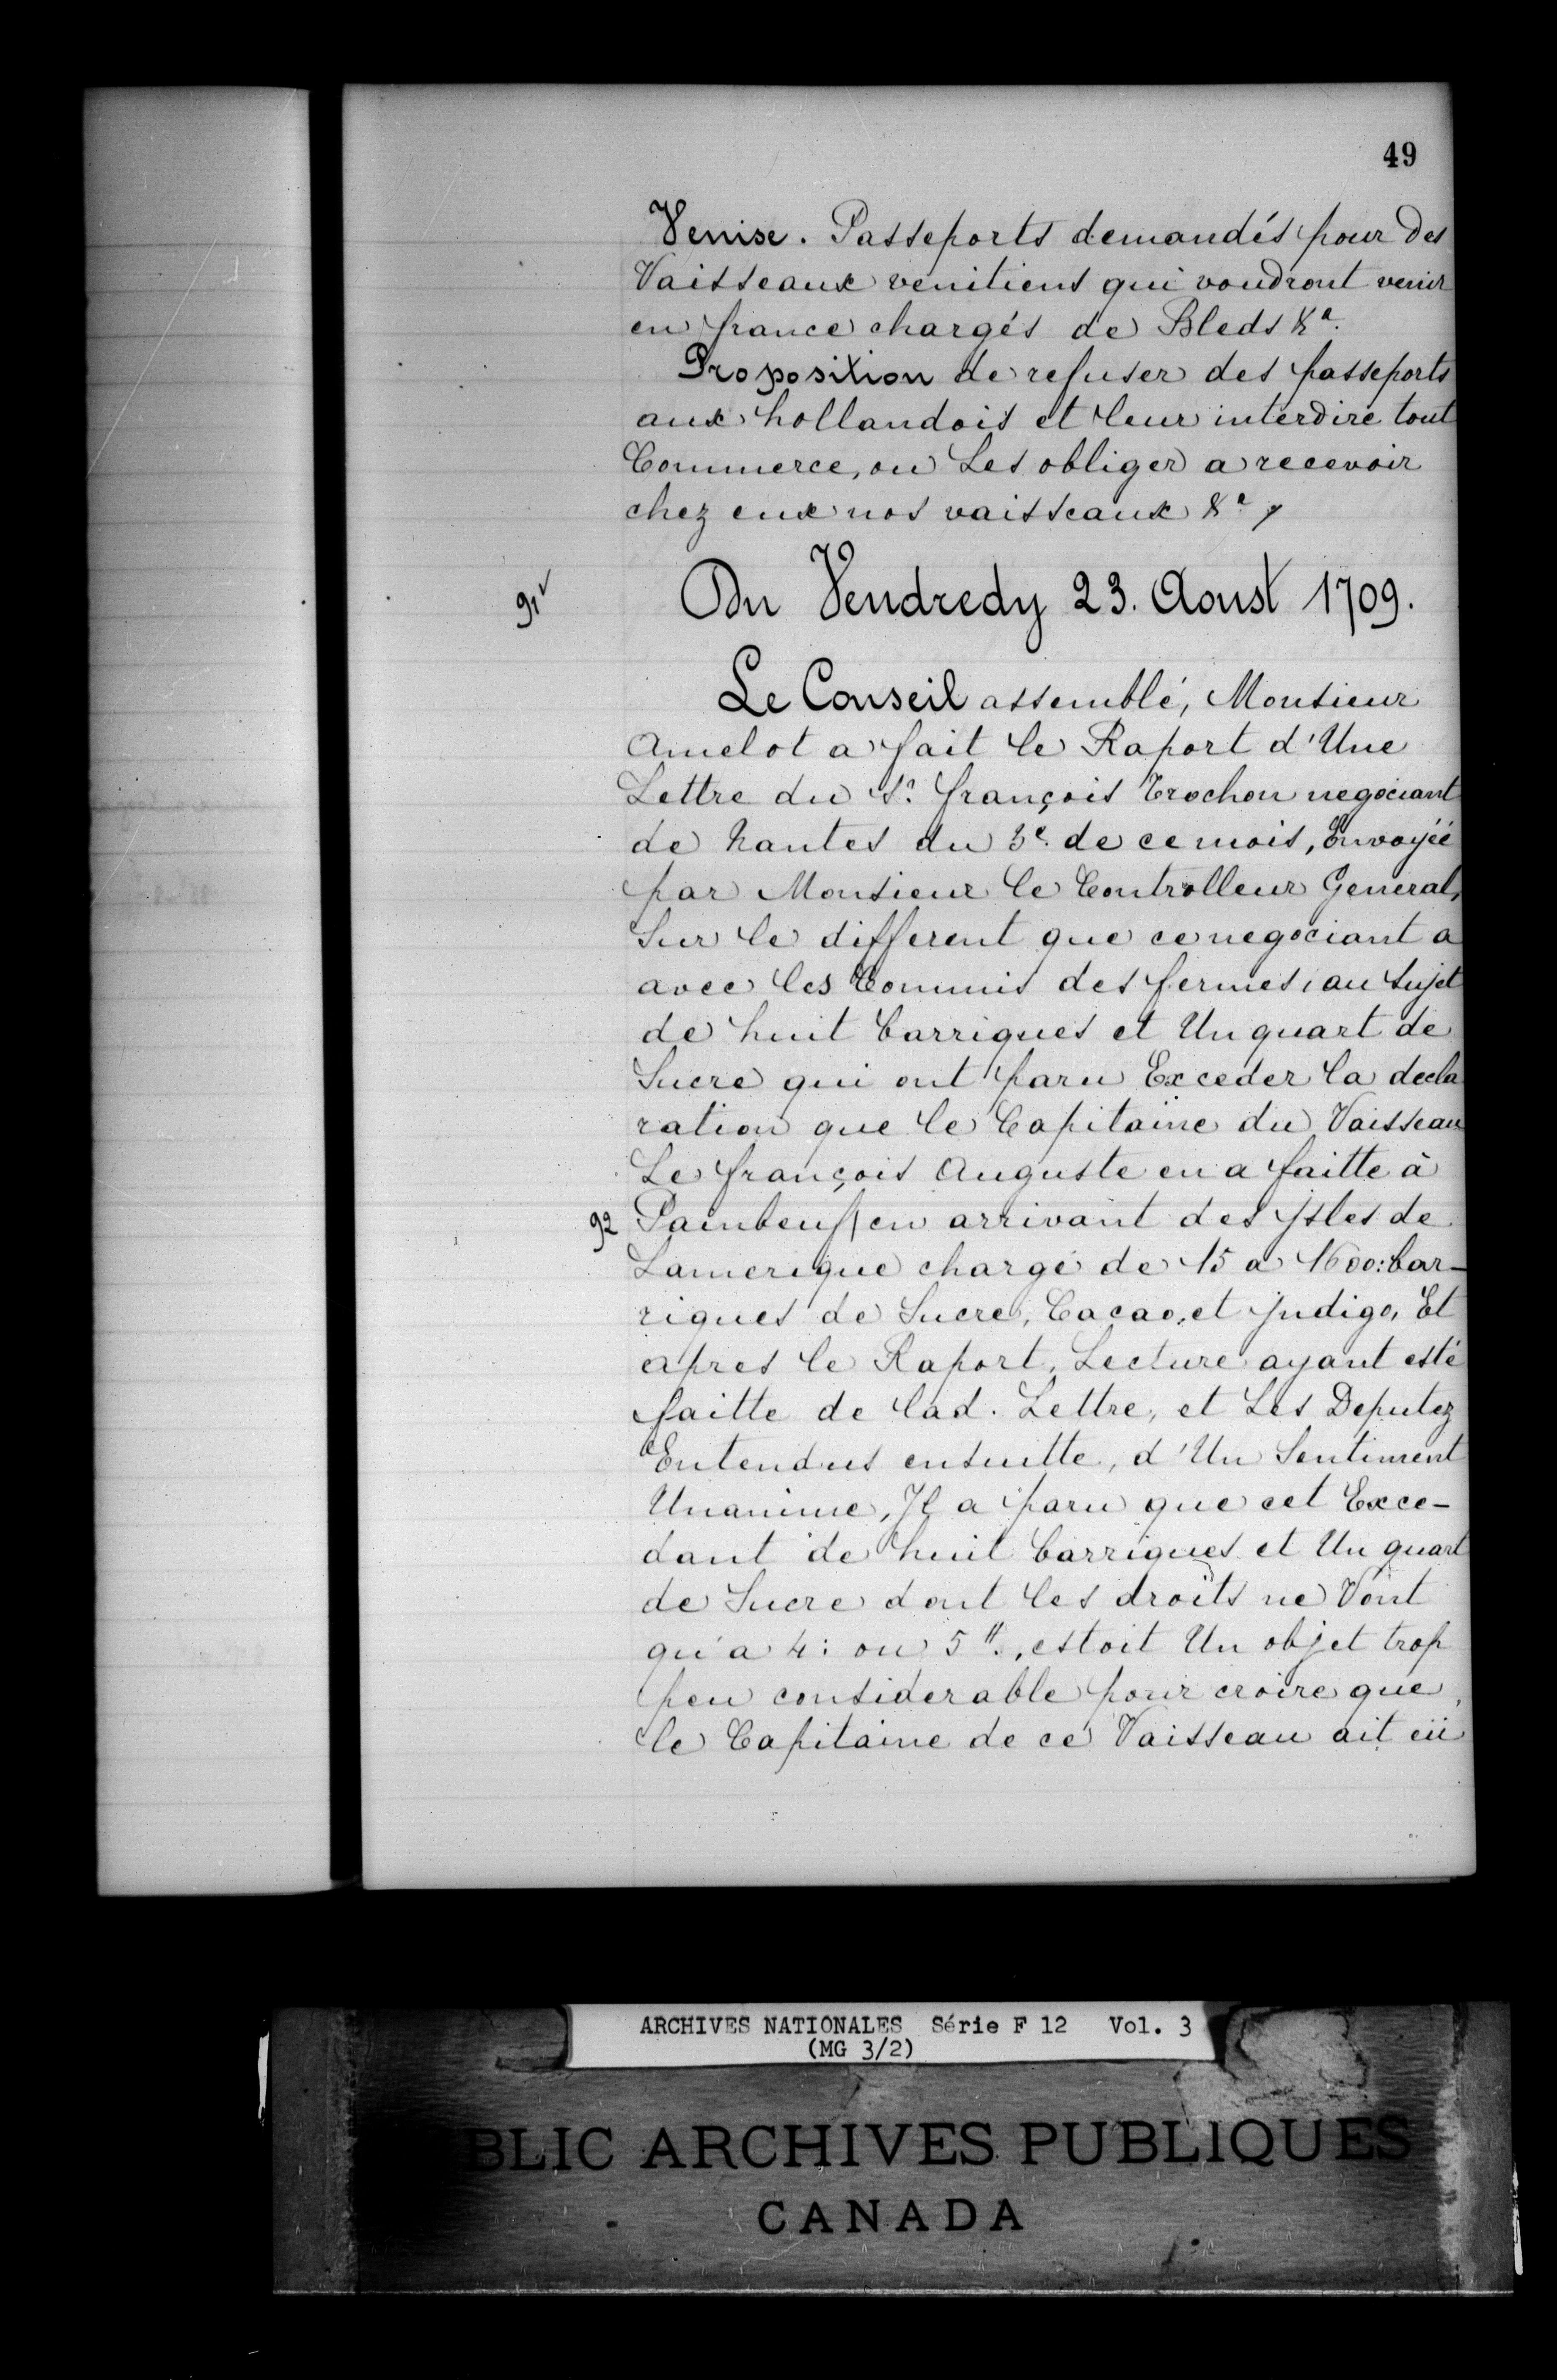 49
Venise. Passeports demandés pour des
Vaisseaux venitiens qui voudront venir
en france chargés de Bleds &a.
Proposition de refuser des passeports
aux hollandois et leur interdire tout
Commerce, ou Les obliger a recevoir
chez eux nos vaisseaux &a
91v
Du Vendredy 23. Aoust 1709.
Le Conseil assemblé, Monsieur
Amelot a fait le Raport d'Une
Lettre du Sr. françois Trochon negociant
de Nantes du 3e. de ce mois, Envoyée
par Monsieur le Controlleur General,
Sur le different que ce negociant a
avec les Commis des fermes, au Sujet
de huit barriques et Un quart de
Sucre qui ont paru Exceder la decla
ration que le Capitaine du Vaisseau
Le françois Auguste en a faitte à
92 Painbeuf en arrivant des Isles de
Lamerique chargé de 15 a 1600: bar-
riques de Sucre, Cacao, et Indigo, Et
apres le Raport, Lecture ayant esté
faitte de lad. Lettre, et Les Deputez
Entendus ensuitte, d'Un Sentiment
Unanime, Il a paru que cet Exce-
dant de huit barriques et Un quart
de Sucre dont les droits ne Vont
qu'a 4: ou 5tt., estoit Un objet trop
peu considerable pour croire que
le Capitaine de ce Vaisseau ait eü
ARCHIVES NATIONALES Série F 12 Vol. 3
(MG 3/2)
BLIC ARCHIVES PUBLIQUES
CANADA